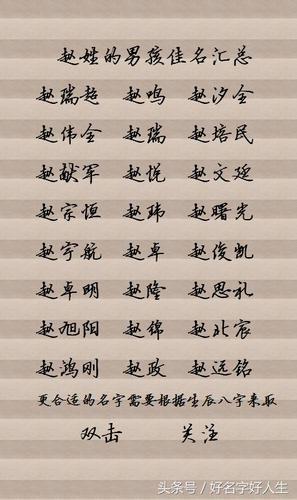 赵姓的男孩佳名汇总
赵瑞超 赵鸣 赵汐全
赵伟全 赵瑞 赵培民
赵猷军 赵悦 赵文延
赵宗恒 赵玮 赵曙光
赵宇航 赵卓 赵俊凯
赵卓明 赵隆 赵思礼
赵旭阳 赵锦 赵北宸
赵鸿刚 赵政 赵远铭
更合适的名字需要根据生辰八字来取
双击 关注
头条号 / 好名字好人生